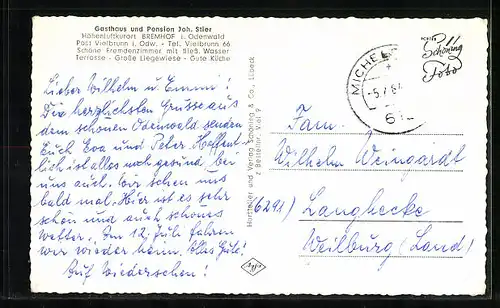 Gasthaus und Pension Joh. Stier
Höhenluftkurort BREMHOF i. Odenwald
Post Vielbrunn i. Odw. - Tel. Vielbrunn 66
Schöne Fremdenzimmer mit fließ. Wasser
Terrasse - Große Liegewiese - Gute Küche
Lieber Wilhelm u. Emmi!
Die herzlichsten Grüsse aus
dem schönen Odenwald senden
Euch Eva und Peter. Hoffent-
lich ist alles wohl gesund bei
uns auch. Wir sehen uns
bald mal. Hier ist es sehr
schön und auch schönes
Wetter. Am 12. Juli fahren
wir wieder heim. Alles Gute!
Auf Wiedersehen!
Hersteller und Verlag Schöning & Co., Lübeck
z Bestellnr. Viel 9
MICHEL
-5.7.
61
Schöning
Foto
Fam.
Wilhelm Weingardt
(6291) Langhecke
Weilburg (Land)